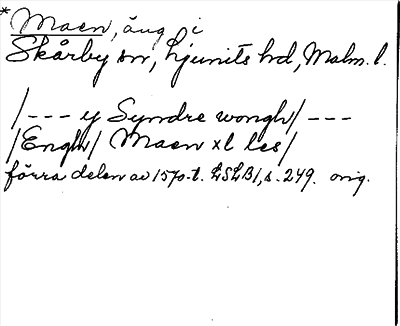 * Maen, äng i
Skårby sn, Ljunits hd, Malm. l.
/--- y Syndre wongh/ ---
/Engh/ Maen xl les/
förra delen av 1570-t. LSLB1, s. 249. orig.